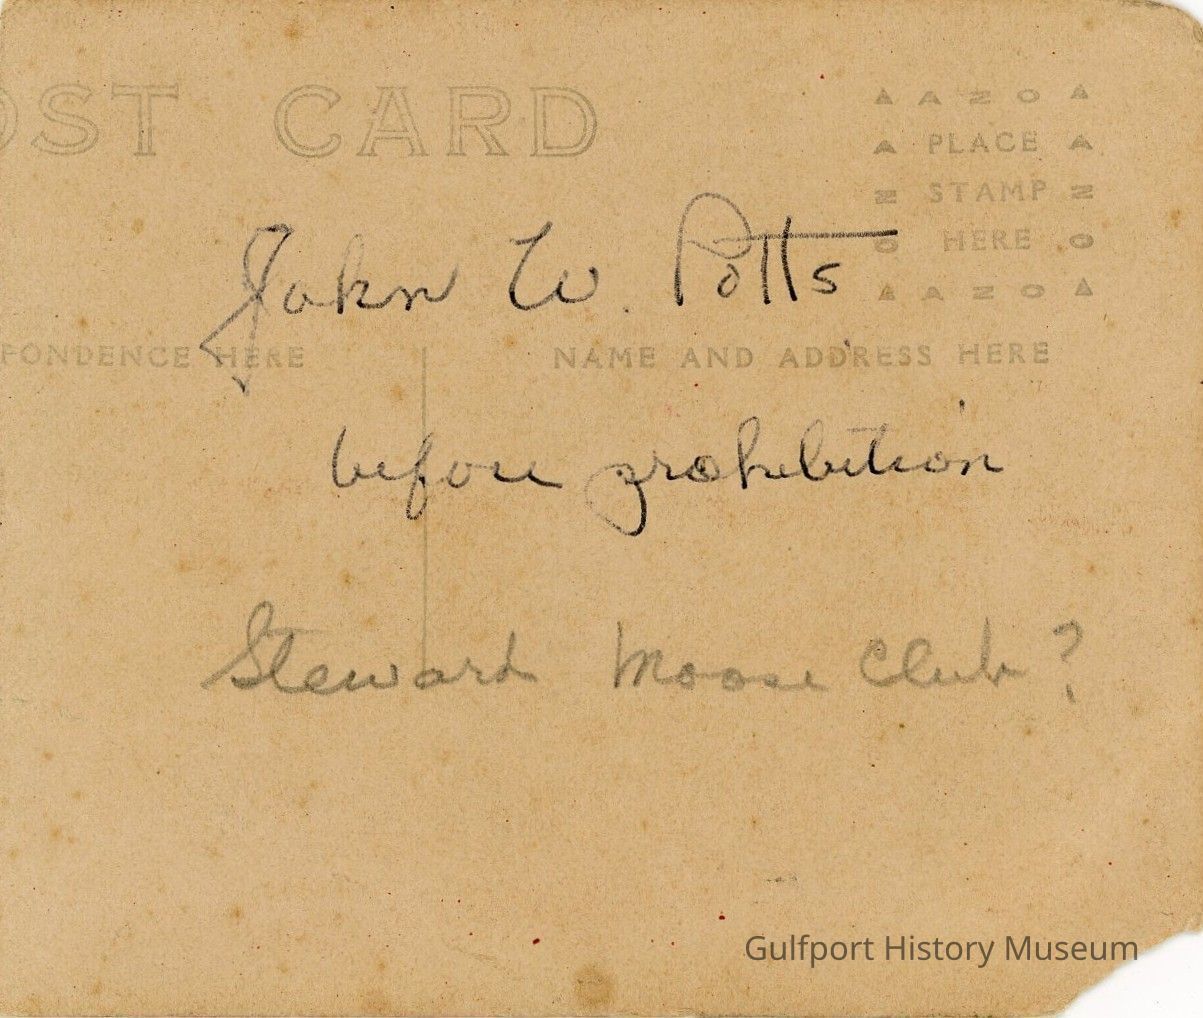 OST CARD
AZO
PLACE
STAMP
HERE
AZO
John W. Potts
PONDENCE HERE
NAME AND ADDRESS HERE
before prohibition
Steward Moose Club?
Gulfport History Museum